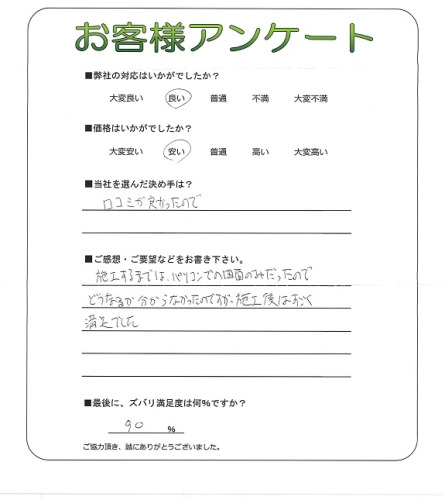 お客様アンケート
■弊社の対応はいかがでしたか?
大変良い 良い 普通 不満 大変不満
■価格はいかがでしたか?
大変安い 安い 普通 高い 大変高い
■当社を選んだ決め手は?
口コミが良かったので
■ご感想・ご要望などをお書き下さい。
施工するまでは、パソコンでの図面のみだったので
どうなるか分からなかったのですが、施工後はすごく
満足でした
■最後に、ズバリ満足度は何%ですか?
90 %
ご協力頂き、誠にありがとうございました。